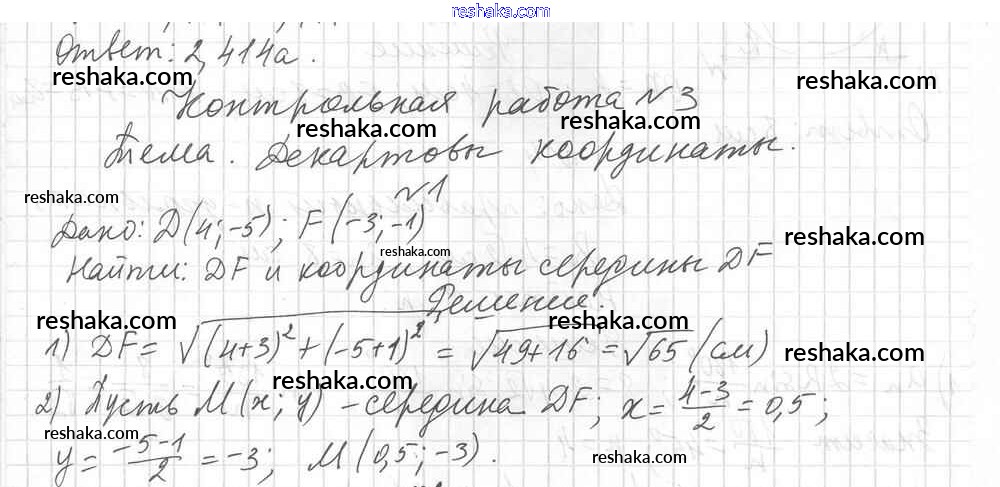 reshaka.com
Ответ: 2,414a.
reshaka.com
reshaka.com
Контрольная работа №3
reshaka.com
reshaka.com
Тема. Декартовы координаты.
reshaka.com
№1
Дано: D(4;-5); F(-3;-1)
reshaka.com
reshaka.com
Найти: DF и координаты середины DF
Решение:
reshaka.com
reshaka.com
1) DF = √((4+3)²+(-5+1)²) = √(49+16) = √65 (см)
reshaka.com
reshaka.com
2) Пусть M(x; y) - середина DF; x = (4-3)/2 = 0,5;
reshaka.com
y = (-5-1)/2 = -3; M(0,5; -3).
reshaka.com